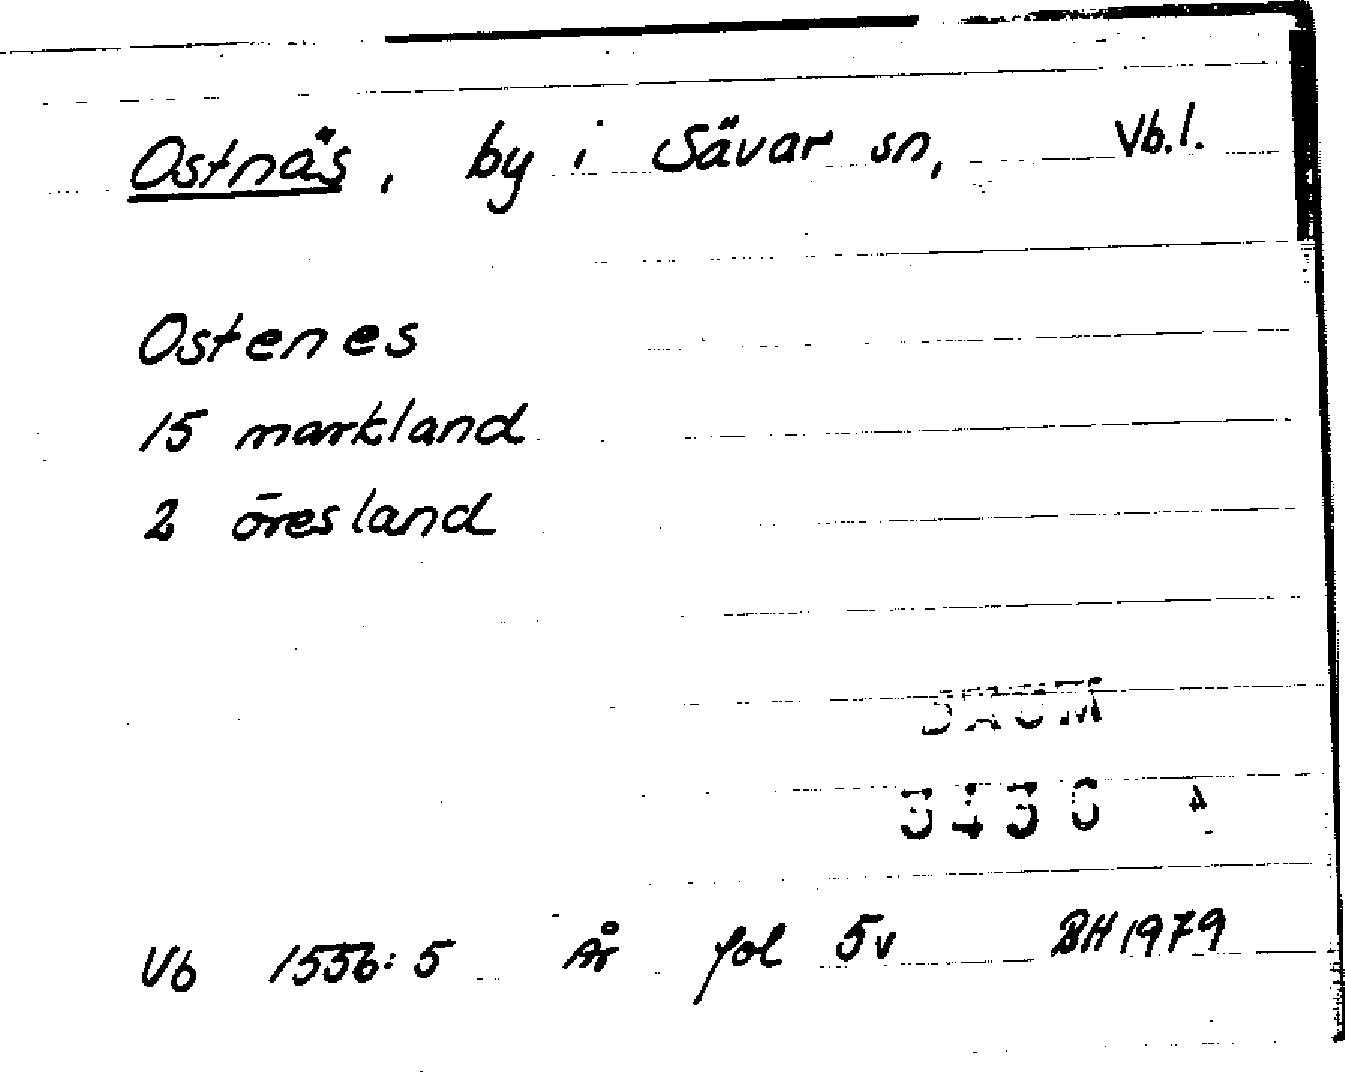 Ostnäs, by i Sävar sn, Vb.l.
Ostenes
15 markland
2 öresland
Vb 1556:5 År fol 5v BH 1979